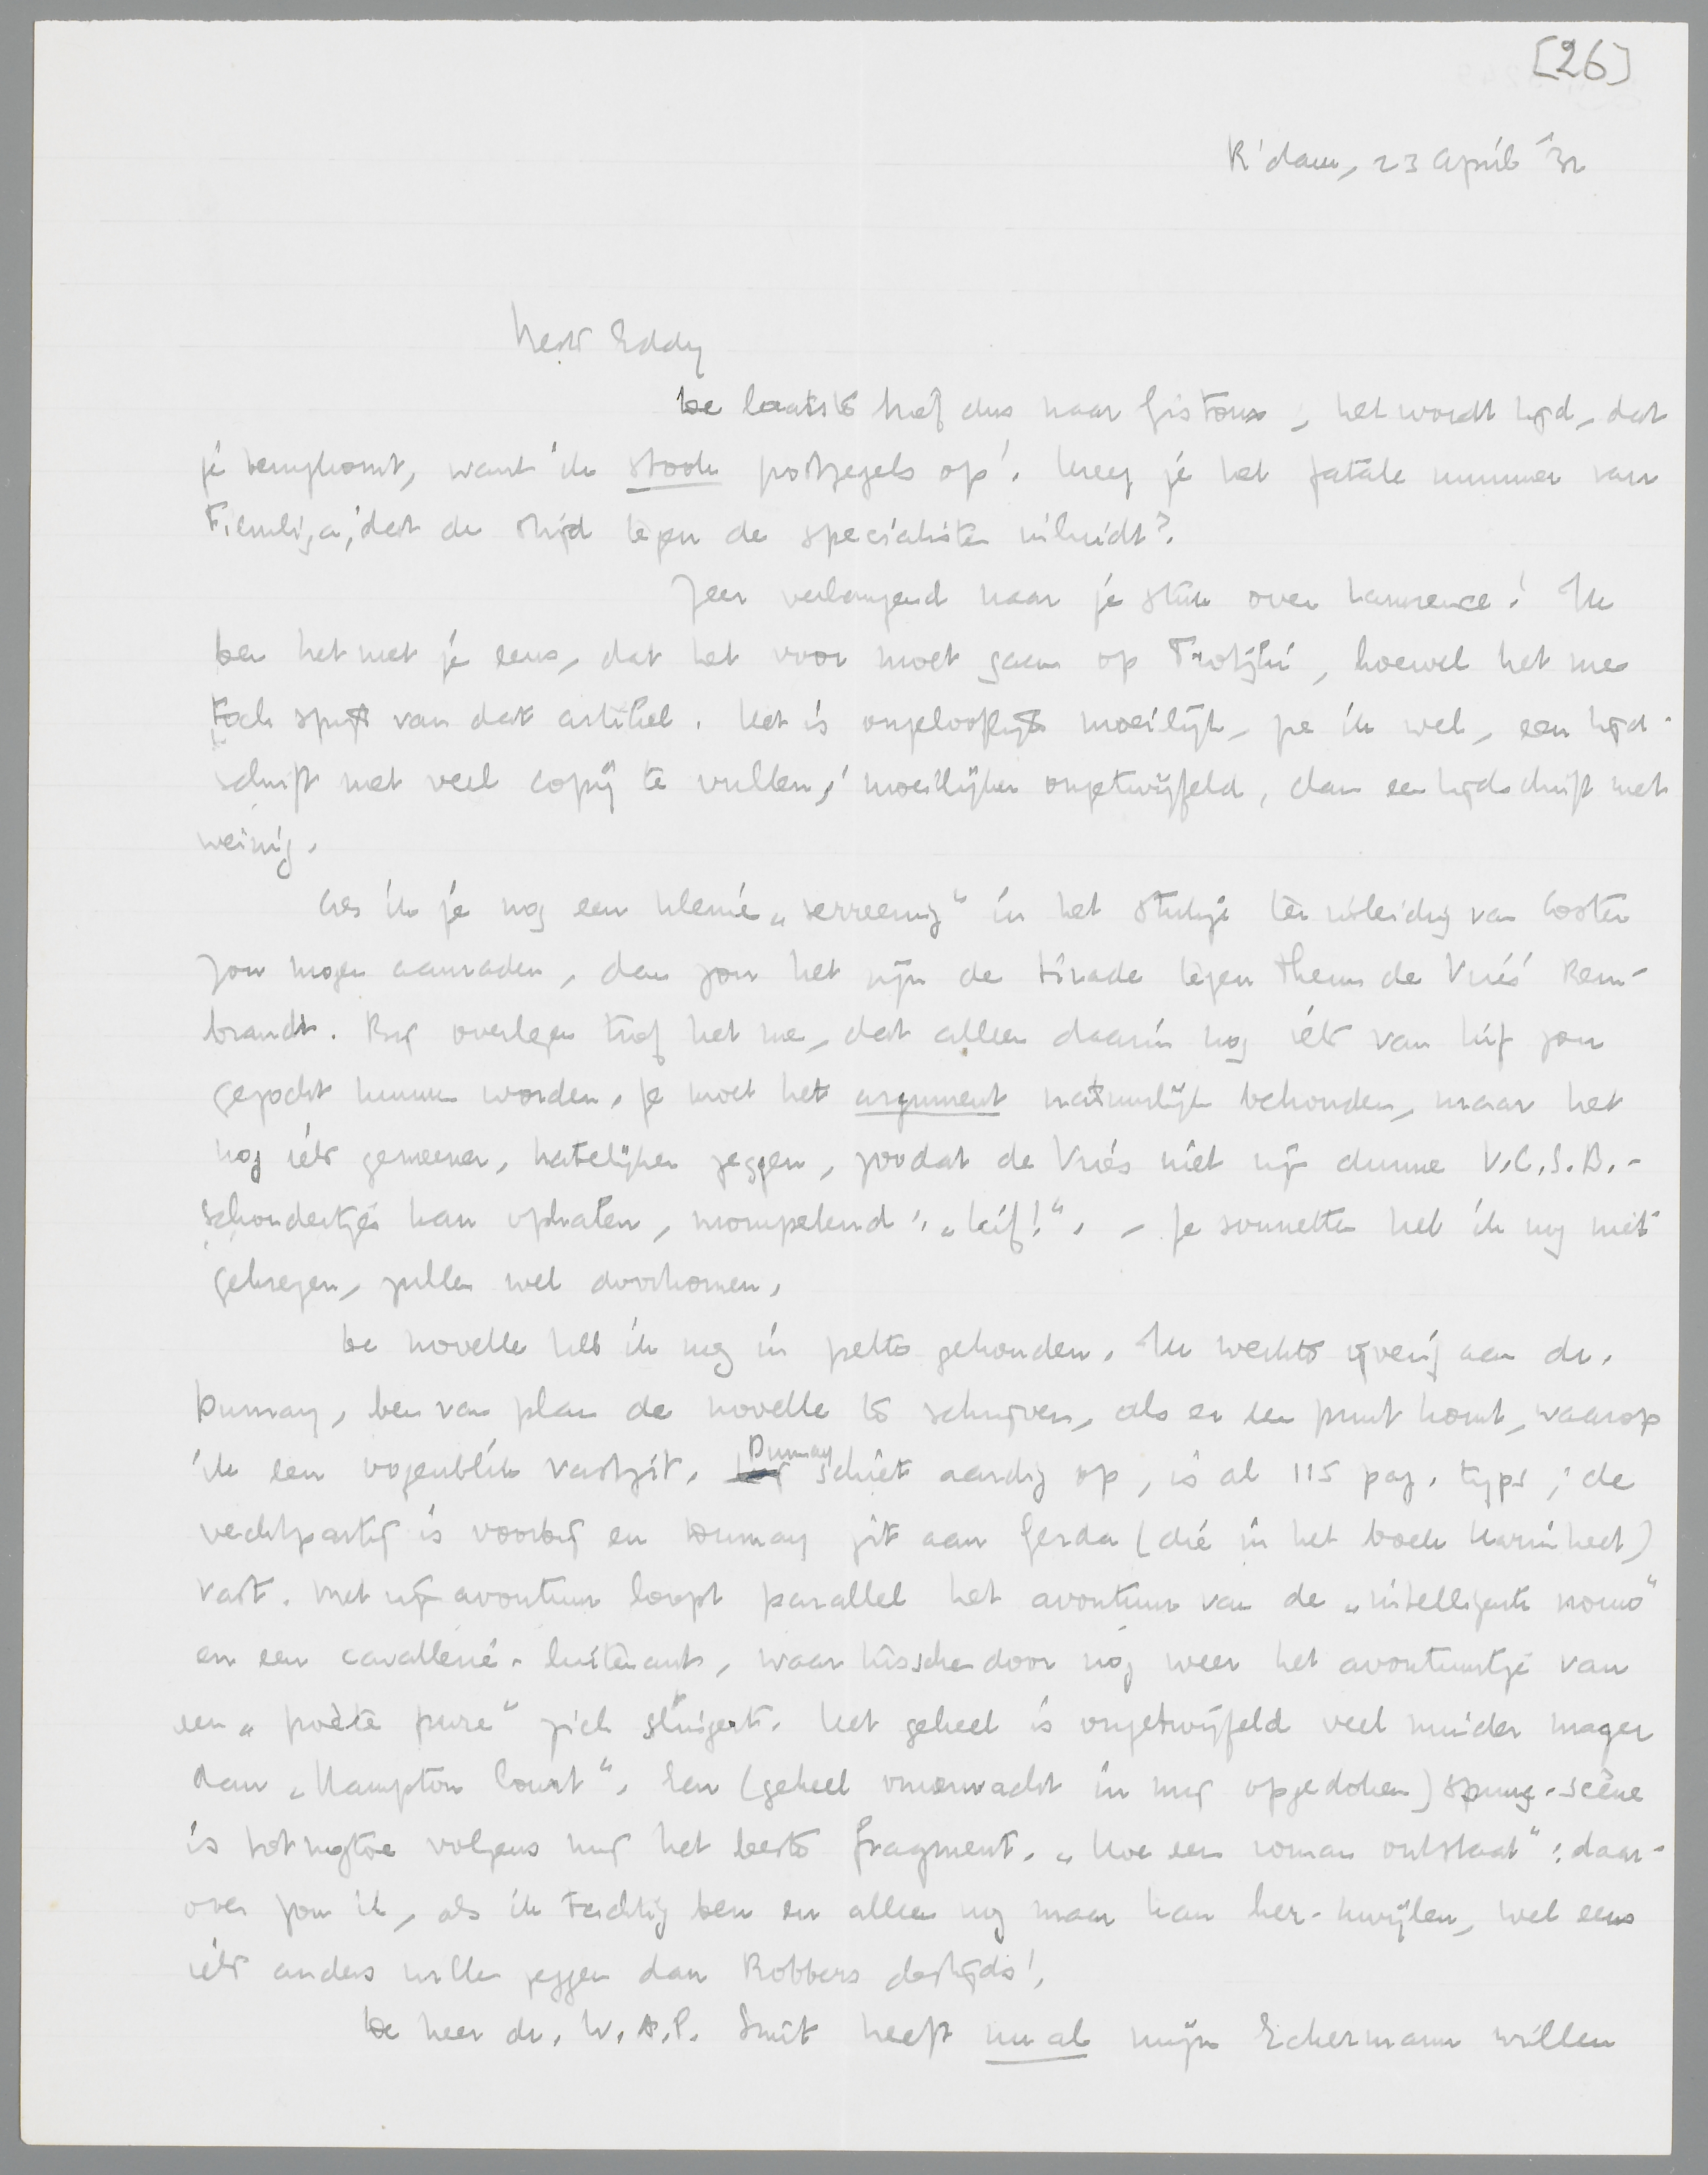 [26]
R'dam, 23 April '32
Beste Eddy
De laatste brief dus naar Gistoux, het wordt tijd, dat
je terugkomt, want ik stook postzegels op! Kreeg je het fatale nummer van
Filmliga, dat de strijd tegen de specialisten inluidt?
Zeer verlangend naar je stuk over Lawrence! Ik
ben het met je eens, dat het voor moet gaan op Trotzki, hoewel het me
toch spijt van dat artikel. Het is ongelooflijk moeilijk, zie ik wel, een tijd-
schrift met veel copij te vullen; moeilijker ongetwijfeld, dan een tijdschrift met
weinig.
Als ik je nog een kleine „verreeniging" in het stukje ter inleiding van Coster
zou mogen aanraden, dan zou het zijn de tirade tegen Theun de Vries' Rem-
brandt. Bij overlezen trof het me, dat alleen daarin nog iets van kif zou
gezocht kunnen worden. Je moet het argument natuurlijk behouden, maar het
nog iets gemeener, hatelijker zeggen, zoodat de Vries niet zijn dunne V.C.S.B.-
schoudertjes kan ophalen, mompelend: „kif!". - Je sonnetten heb ik nog niet
gekregen, zullen wel doorkomen.
De novelle heb ik nog in petto gehouden. Ik werkte ijverig aan dr.
Dumay, ben van plan de novelle te schrijven, als er een punt komt, waarop
ik een oogenblik vastzit. Dumay schiet aardig op, is al 115 pag. typs; de
vechtpartij is voorbij en Dumay zit aan Gerda (die in het boek Karin heet)
vast. Met zijn avontuur loopt parallel het avontuur van de „intelligente homo"
en een cavallerie-luitenant, waar tusschendoor nog weer het avontuurtje van
een „poète pure" zich slingert. Het geheel is ongetwijfeld veel minder mager
dan „Hampton Court". Een (geheel onverwacht in mij opgedoken) spuug-scène
is tot nogtoe volgens mij het beste fragment. „Hoe een roman ontstaat": daar-
over zou ik, als ik tachtig ben en alleen nog maar kan her-kwijlen, wel eens
iets anders willen zeggen dan Robbers destijds!
De heer dr. W.A.P. Smit heeft nu al mijn Eckermann willen